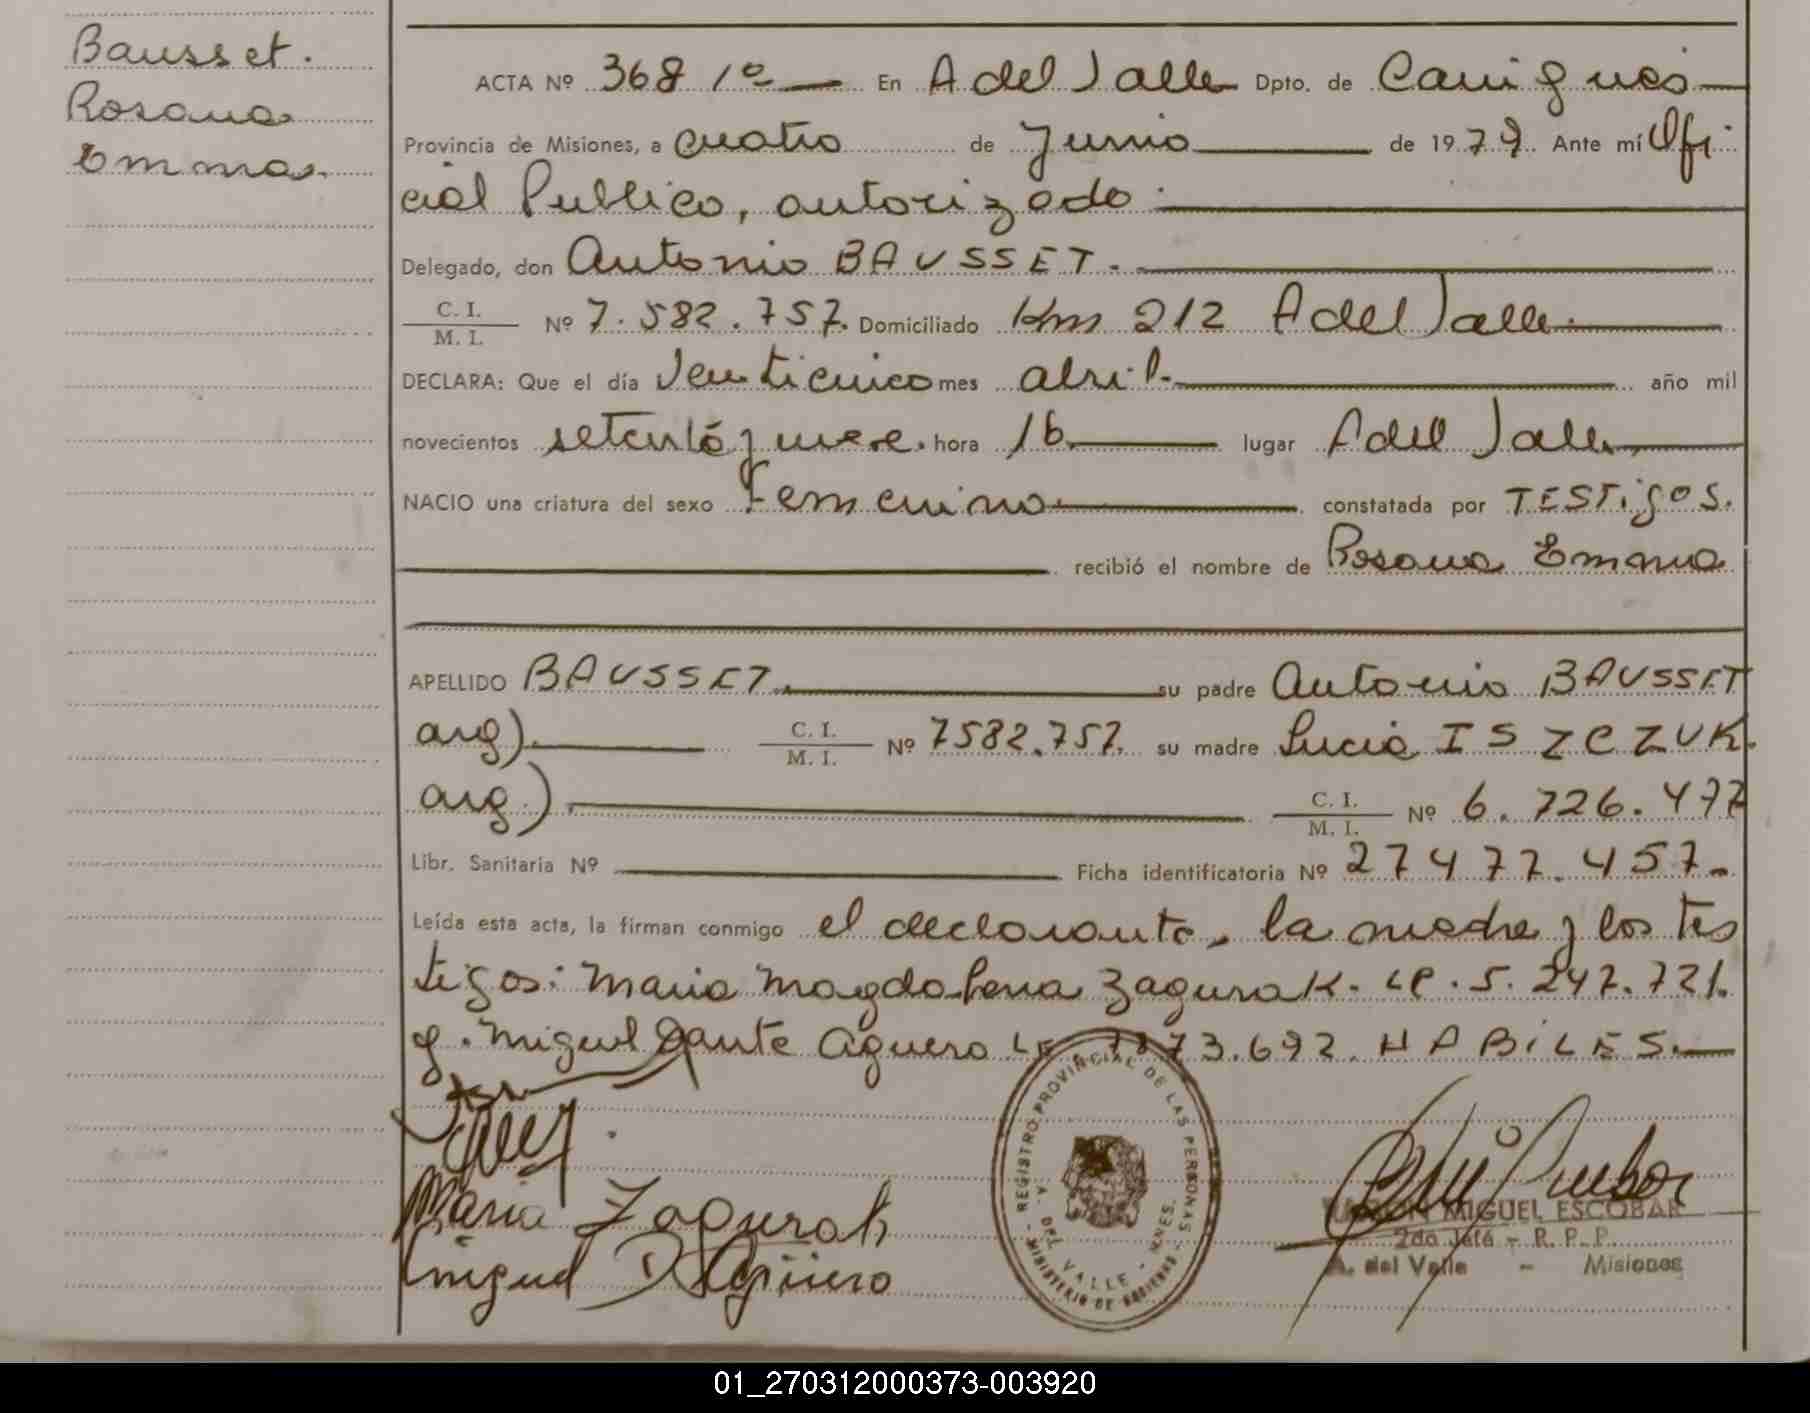 Bausset.
Rosana
Emma.
ACTA Nº 368 1º En A del Valle Dpto. de Cainguas
Provincia de Misiones, a cuatro de Junio de 1979. Ante mí Ofi
cial Publico, autorizado
Delegado, don Antonio BAUSSET.
C. I.
M. I. Nº 7.582.757. Domiciliado Km 212 A del Valle.
DECLARA: Que el día Venticinco mes abril. año mil
novecientos setenta y nueve. hora 16 lugar A del Valle
NACIO una criatura del sexo Femenino constatada por TESTigOS.
recibió el nombre de Rosana Emma
APELLIDO BAUSSET. su padre Antonio BAUSSET
arg). C. I.
M. I. Nº 7582.757. su madre Lucia ISZCZUK.
arg.) C. I.
M. I. Nº 6.726.477
Libr. Sanitaria Nº Ficha identificatoria Nº 27477.457.
Leída esta acta, la firman conmigo el declarante, la madre y los tes
tigos: Maria Magdalena Zagurak. LC. 5.247.721.
y. Miguel Dante Aguero LE 7873.692. HABiLES.
Maria Zagurak
Miguel D Agüero
REGISTRO PROVINCIAL DE LAS PERSONAS
MINISTERIO DE GOBIERNO
A. DEL VALLE - MNES.
RAMON MIGUEL ESCOBAR
2do Jefe - R. P. P.
A. del Valle - Misiones
01_270312000373-003920